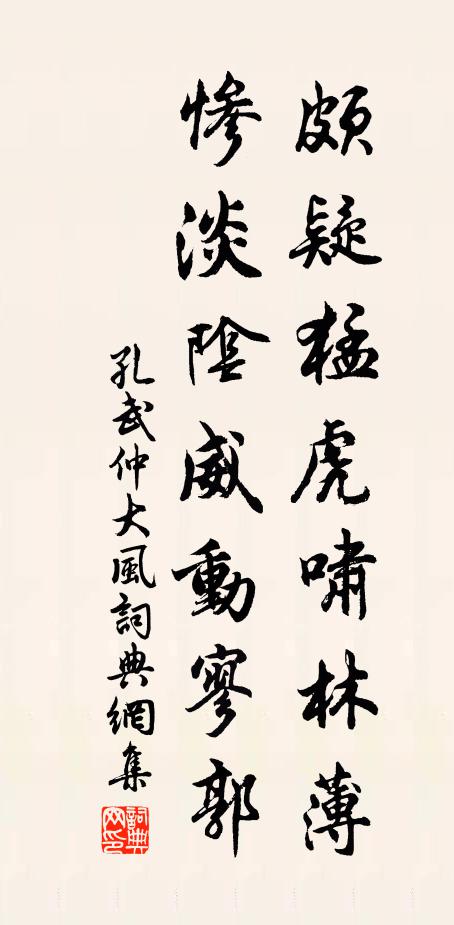 頗疑猛虎嘯林薄
慘淡陰威動寥郭
孔武仲大風詞典網集
詞典网印